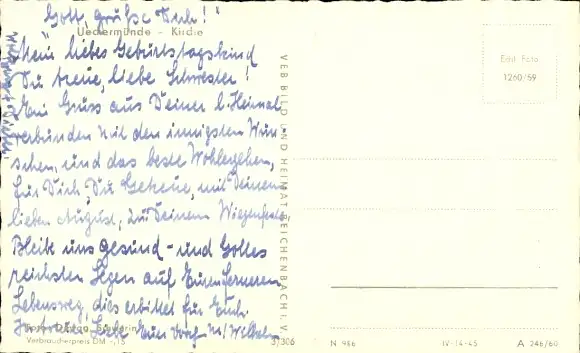 Gott grüße Dich!"
Ueckermünde - Kirche
Mein liebes Geburtstagskind
Du treue, liebe Schwester!
Ein Gruss aus Deiner l. Heimat
verbunden mit den innigsten Wün-
schen, und das beste Wohlergehen,
für Dich, Du Getreue, mit Deinem
lieben August, zu Deinem Wiegenfeste
Bleibe uns gesund - und Gottes
reichsten Segen auf Euren ferneren
Lebensweg, dies erbittet für Euch
In Liebe Euer
Verbraucherpreis DM -,15
VEB BILD UND HEIMAT REICHENBACH I. V.
3/306
Echt Foto
1260/59
N 986
IV-14-45
A 246/60